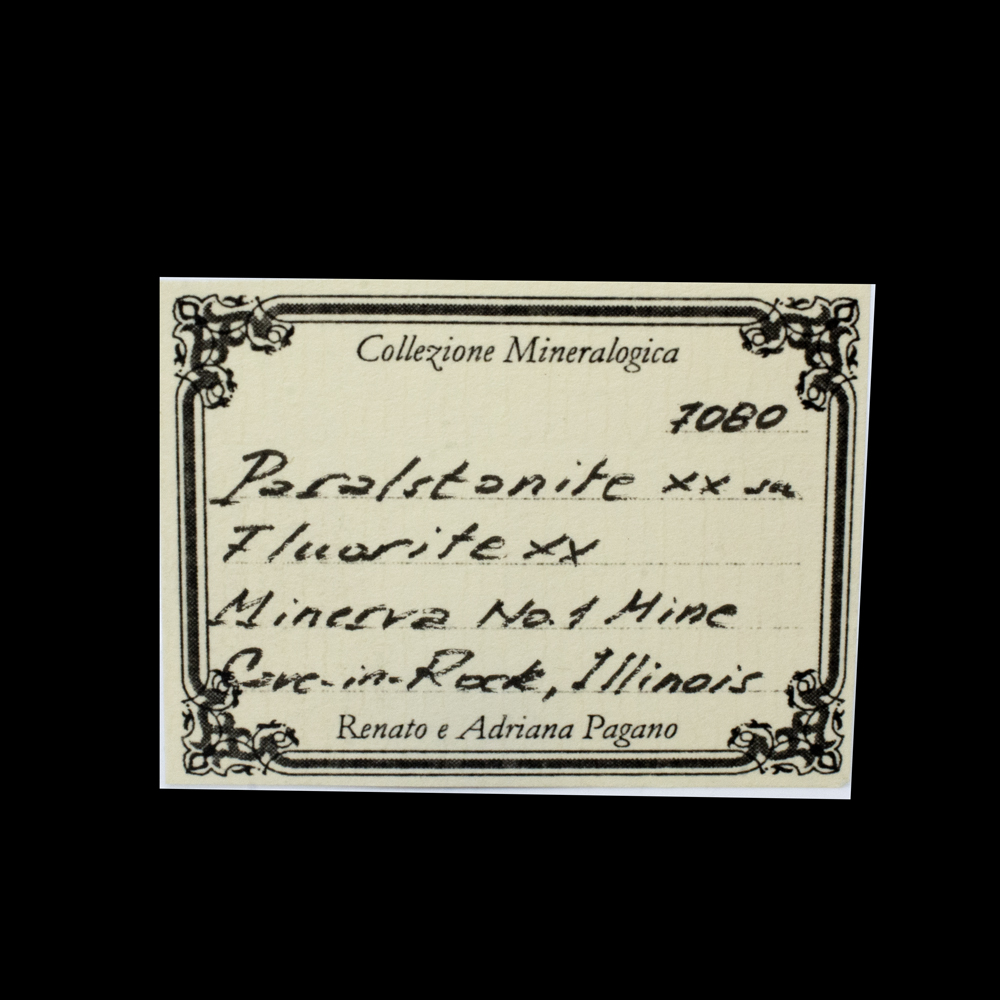 Collezione Mineralogica
7080
Paralstonite xx su
Fluorite xx
Minerva No.1 Mine
Cave-in-Rock, Illinois
Renato e Adriana Pagano